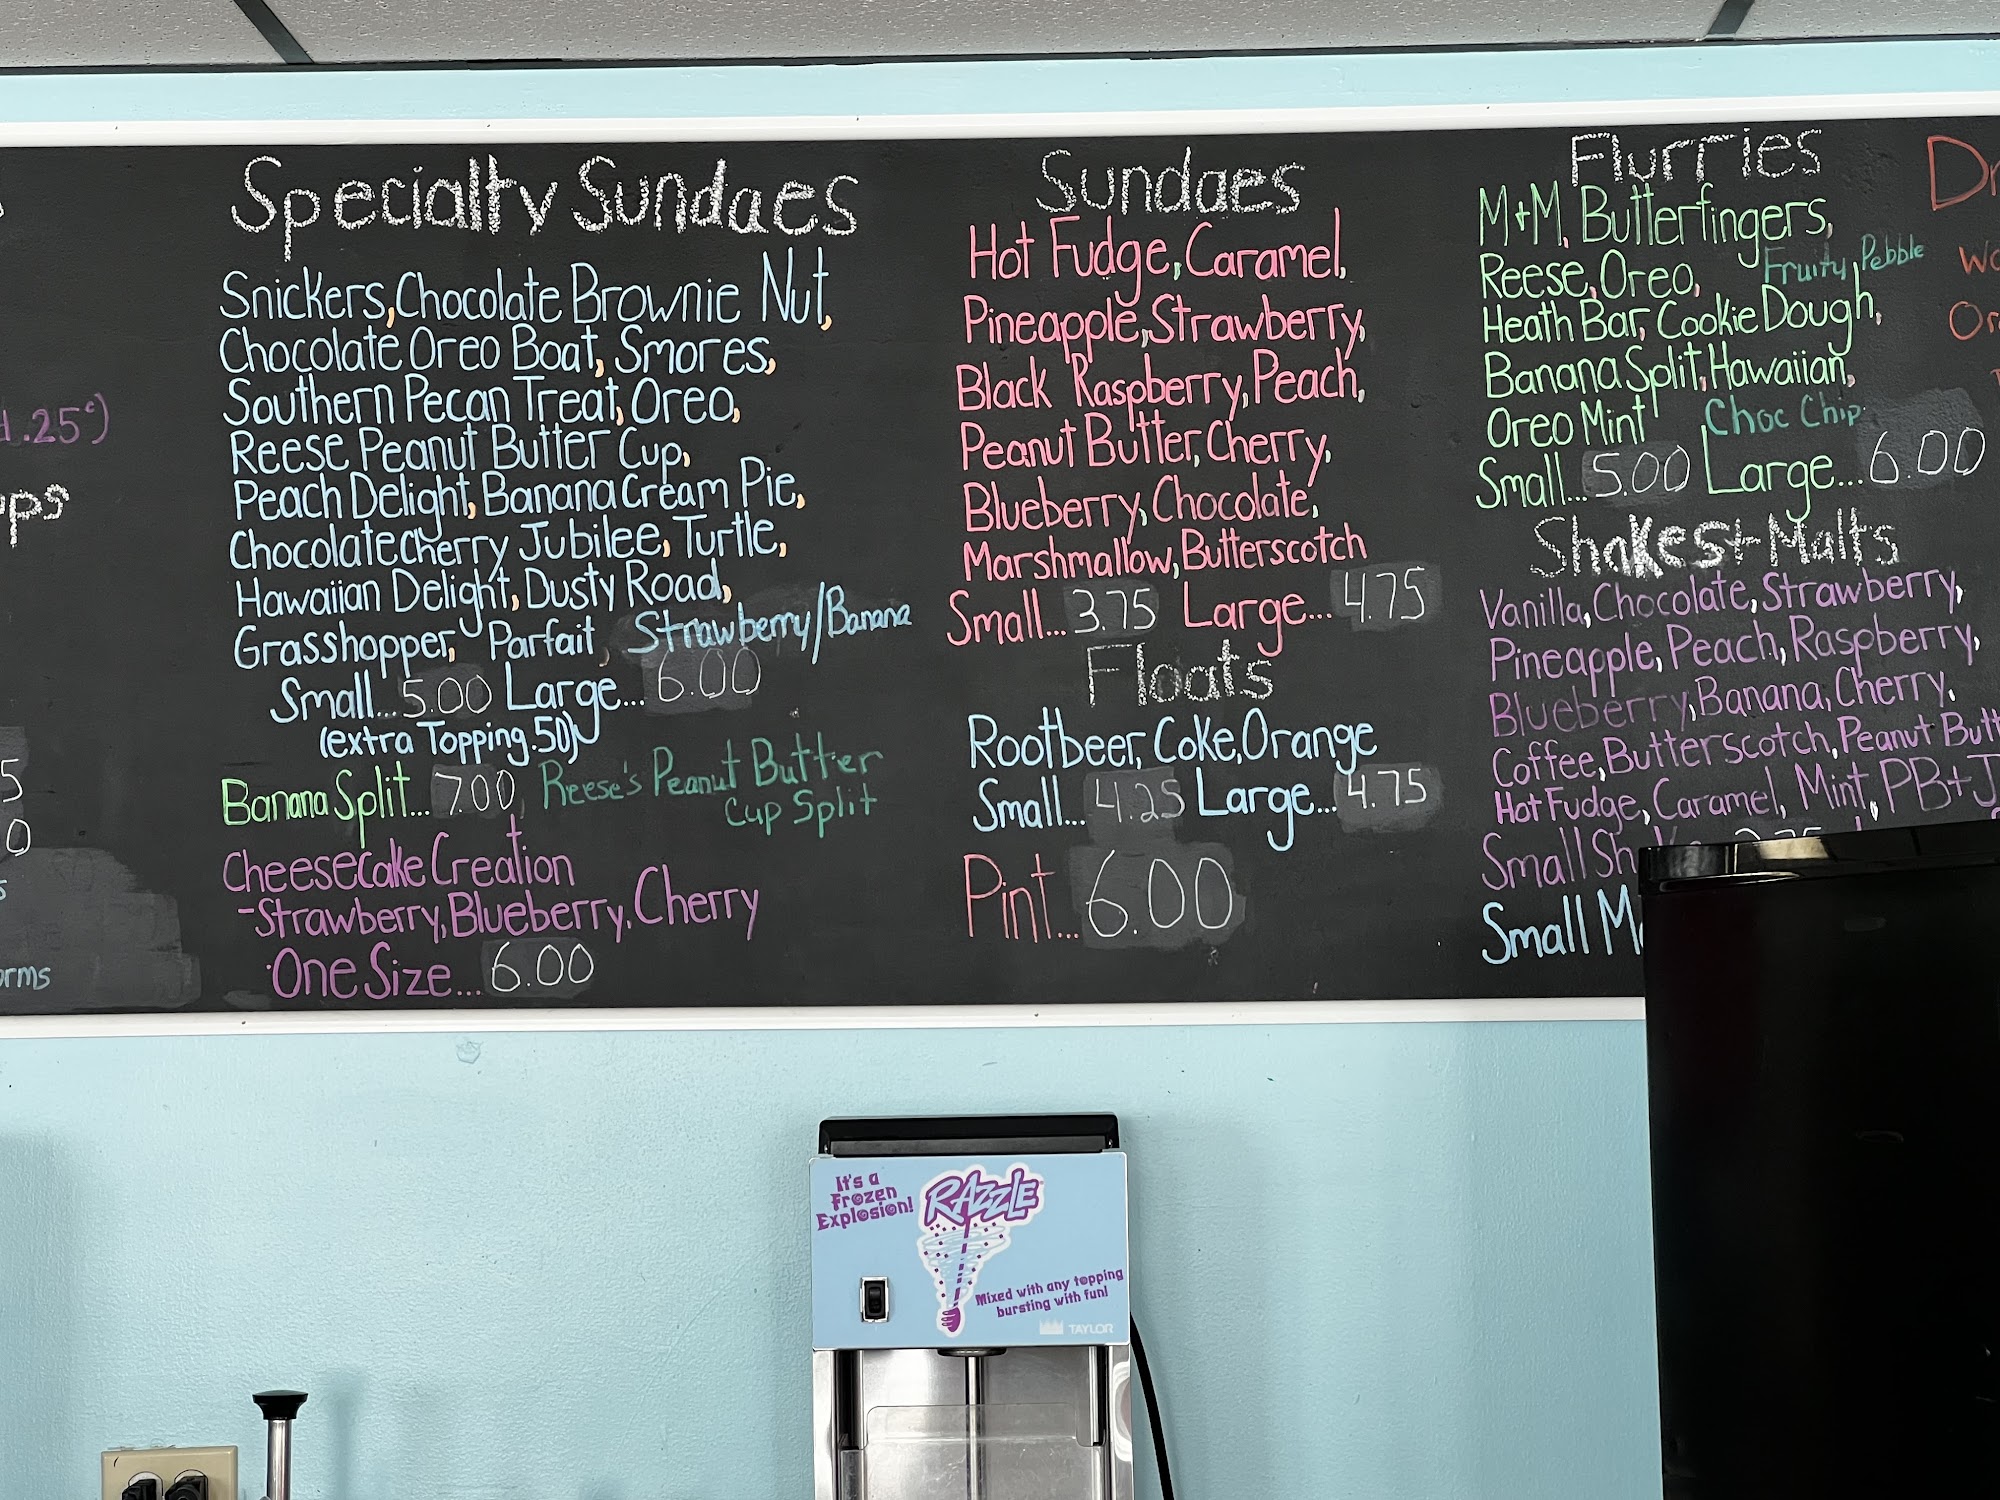 .25¢)
Specialty Sundaes
Snickers, Chocolate Brownie Nut,
Chocolate Oreo Boat, Smores,
Southern Pecan Treat, Oreo,
Reese Peanut Butter Cup,
Peach Delight, Banana Cream Pie,
Chocolate Cherry Jubilee, Turtle,
Hawaiian Delight, Dusty Road,
Grasshopper, Parfait, Strawberry/Banana
Small... 5.00 Large... 6.00
(extra Topping .50)
Banana Split... 7.00, Reese's Peanut Butter
Cup Split
Cheesecake Creation
-Strawberry, Blueberry, Cherry
One Size... 6.00
Sundaes
Hot Fudge, Caramel,
Pineapple, Strawberry,
Black Raspberry, Peach,
Peanut Butter, Cherry,
Blueberry, Chocolate,
Marshmallow, Butterscotch
Small... 3.75 Large... 4.75
Floats
Rootbeer, Coke, Orange
Small... 4.25 Large... 4.75
Pint... 6.00
Flurries
M+M, Butterfingers,
Reese, Oreo, Fruity Pebble
Heath Bar, Cookie Dough,
Banana Split, Hawaiian,
Oreo Mint Choc Chip
Small... 5.00 Large... 6.00
Shakes + Malts
Vanilla, Chocolate, Strawberry,
Pineapple, Peach, Raspberry,
Blueberry, Banana, Cherry,
Coffee, Butterscotch, Peanut Butt
Hot Fudge, Caramel, Mint, PB+J
Small Sh
Small M
It's a
Frozen
Explosion!
RAZZLE
Mixed with any topping
bursting with fun!
TAYLOR